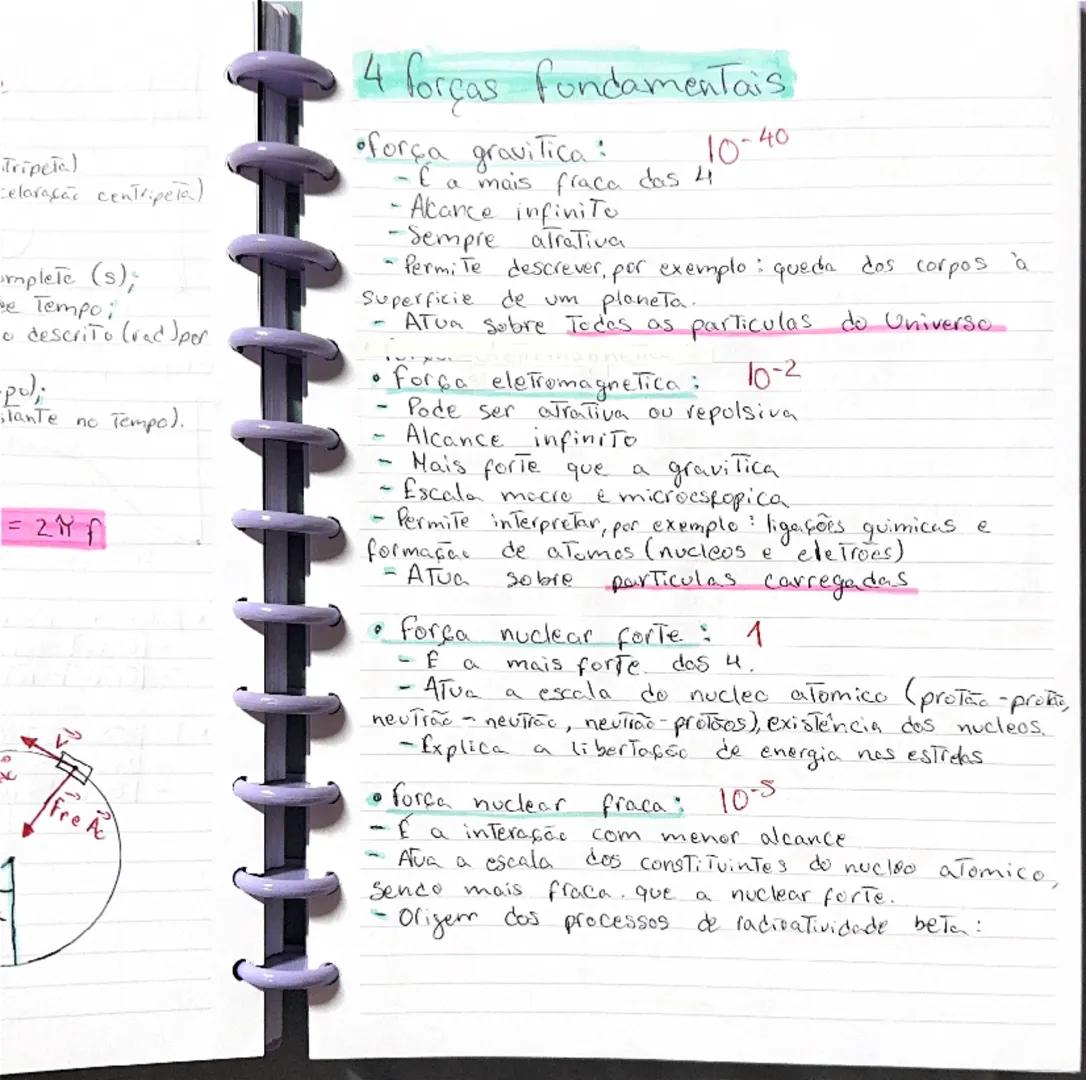 centripeta)
centripeta)
(s);
Tempo;
descriTo (rad) por
no Tempo).
= 2π f
v
Fr e Ac
4 forças fundamenTais
•força graviTica: 10-40
- É a mais fraca das 4
- Alcance infiniTo
- Sempre aTraTiva
- PermiTe descrever, por exemplo: queda dos corpos à
superficie de um planeTa.
- ATua sobre Todas as parTiculas do Universo
• força eleTromagneTica: 10-2
- Pode ser aTraTiva ou repolsiva
- Alcance infiniTo
- Mais forTe que a graviTica
- Escala macro e microescopica
- PermiTe inTerpreTar, por exemplo: ligações quimicas e
formação de aTomos (nucleos e eleTrões)
- ATua sobre parTiculas carregadas
• força nuclear forTe: 1
- É a mais forTe das 4.
- ATua a escala do nucleo aTomico (proTão-proTão,
neuTrão - neuTrão, neuTrão-proTões), exisTência dos nucleos.
- Explica a liberTação de energia nas esTrelas
• força nuclear fraca: 10-5
- É a inTeração com menor alcance
- ATua a escala dos consTiTuinTes do nucleo aTomico,
sendo mais fraca. que a nuclear forTe.
- Origem dos processos de radioaTividade beTa: